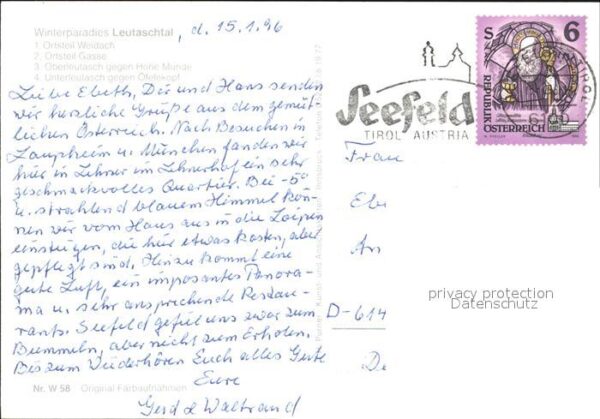 Winterparadies Leutaschtal, d. 15.1.96
1. Ortsteil Weidach
2. Ortsteil Gasse
3. Oberleutasch gegen Hohe Munde
4. Unterleutasch gegen Öfelekopf
Liebe Ebeth, Dir und Hans senden
wir herzliche Grüße aus dem gemüt-
lichen Österreich. Nach Besuchen in
Laupheim u. München fanden wir
hier in Lehnerhof ein sehr
geschmackvolles Quartier. Bei -5°
u. strahlend blauem Himmel kön-
nen wir vom Haus aus in die Loipen
einsteigen, die hier etwas kosten, aber
gepflegt sind. Hinzu kommt eine
gute Luft, ein imposantes Panora-
ma u. sehr ansprechende Restau-
rants. Seefeld gefiel uns zwar zum
Bummeln, aber nicht zum Erholen.
Bis zum Wiederhören Euch alles Gute
Eure
Gerd & Waltraud
Nr. W 58 Original Farbaufnahmen
S 6
REPUBLIK
ÖSTERREICH
Seefeld
TIROL AUSTRIA
Frau
Ebe
An
D-614
De
privacy protection
Datenschutz